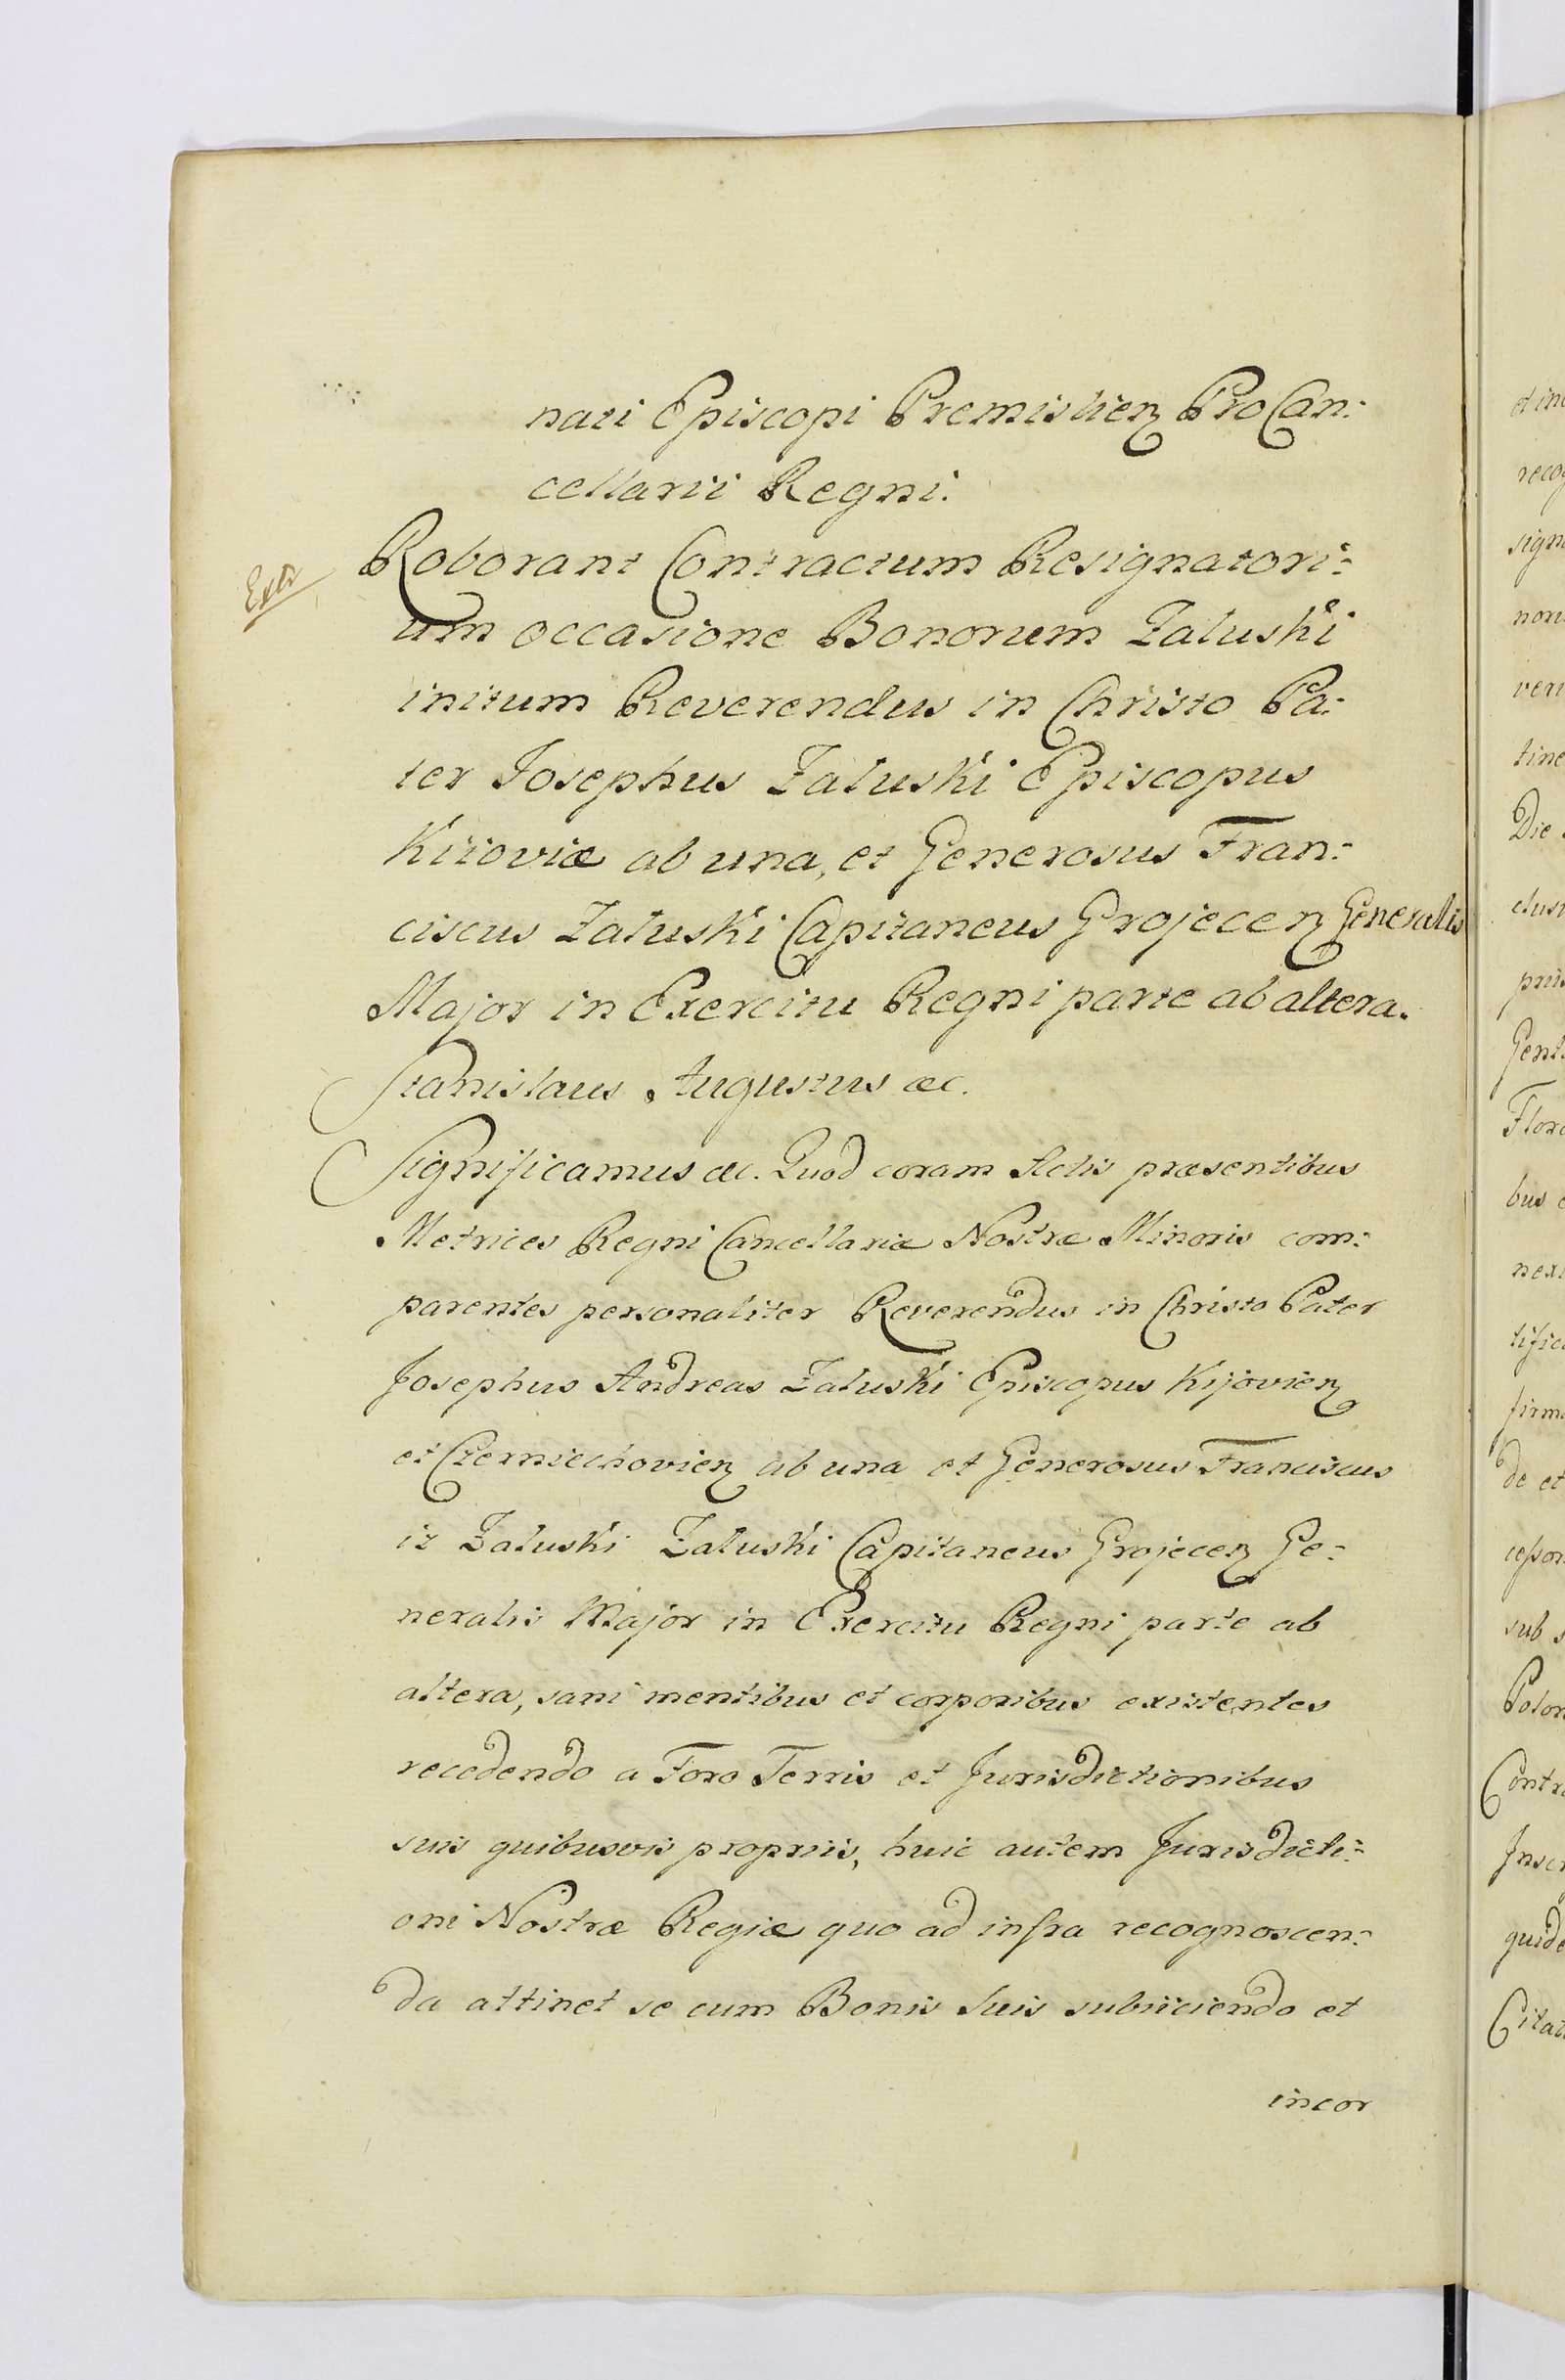 nati Episcopi Premislien ProCan:
cellarii Regni.
Extr
Roborant Contractum Resignatori:
um occasione Bonorum Załuski
initum Reverendus in Christo Pa:
ter Josephus Załuski Episcopus
Kiioviæ ab una, et Generosus Fran:
ciscus Załuski Capitaneus Grojecen Generalis
Major in Exercitu Regni parte ab altera.
Stanislaus Augustus &c.
Significamus &c. Quod coram Actis præsentibus
Metrices Regni Cancellariæ Nostræ Minoris com:
parentes personaliter Reverendus in Christo Pater
Josephus Andreas Załuski Episcopus Kijovien
et Czerniechovien ab una et Generosus Franciscus
in Załuski Załuski Capitaneus Grojecen Ge:
neralis Major in Exercitu Regni parte ab
altera, sani mentibus et corporibus existentes
recedendo a Foro Terris et Jurisdictionibus
suis quibusvis propriis, huic autem Jurisdicti:
oni Nostræ Regiæ quo ad infra recognoscen:
da attinet se cum Bonis Suis subiiciendo et
incor